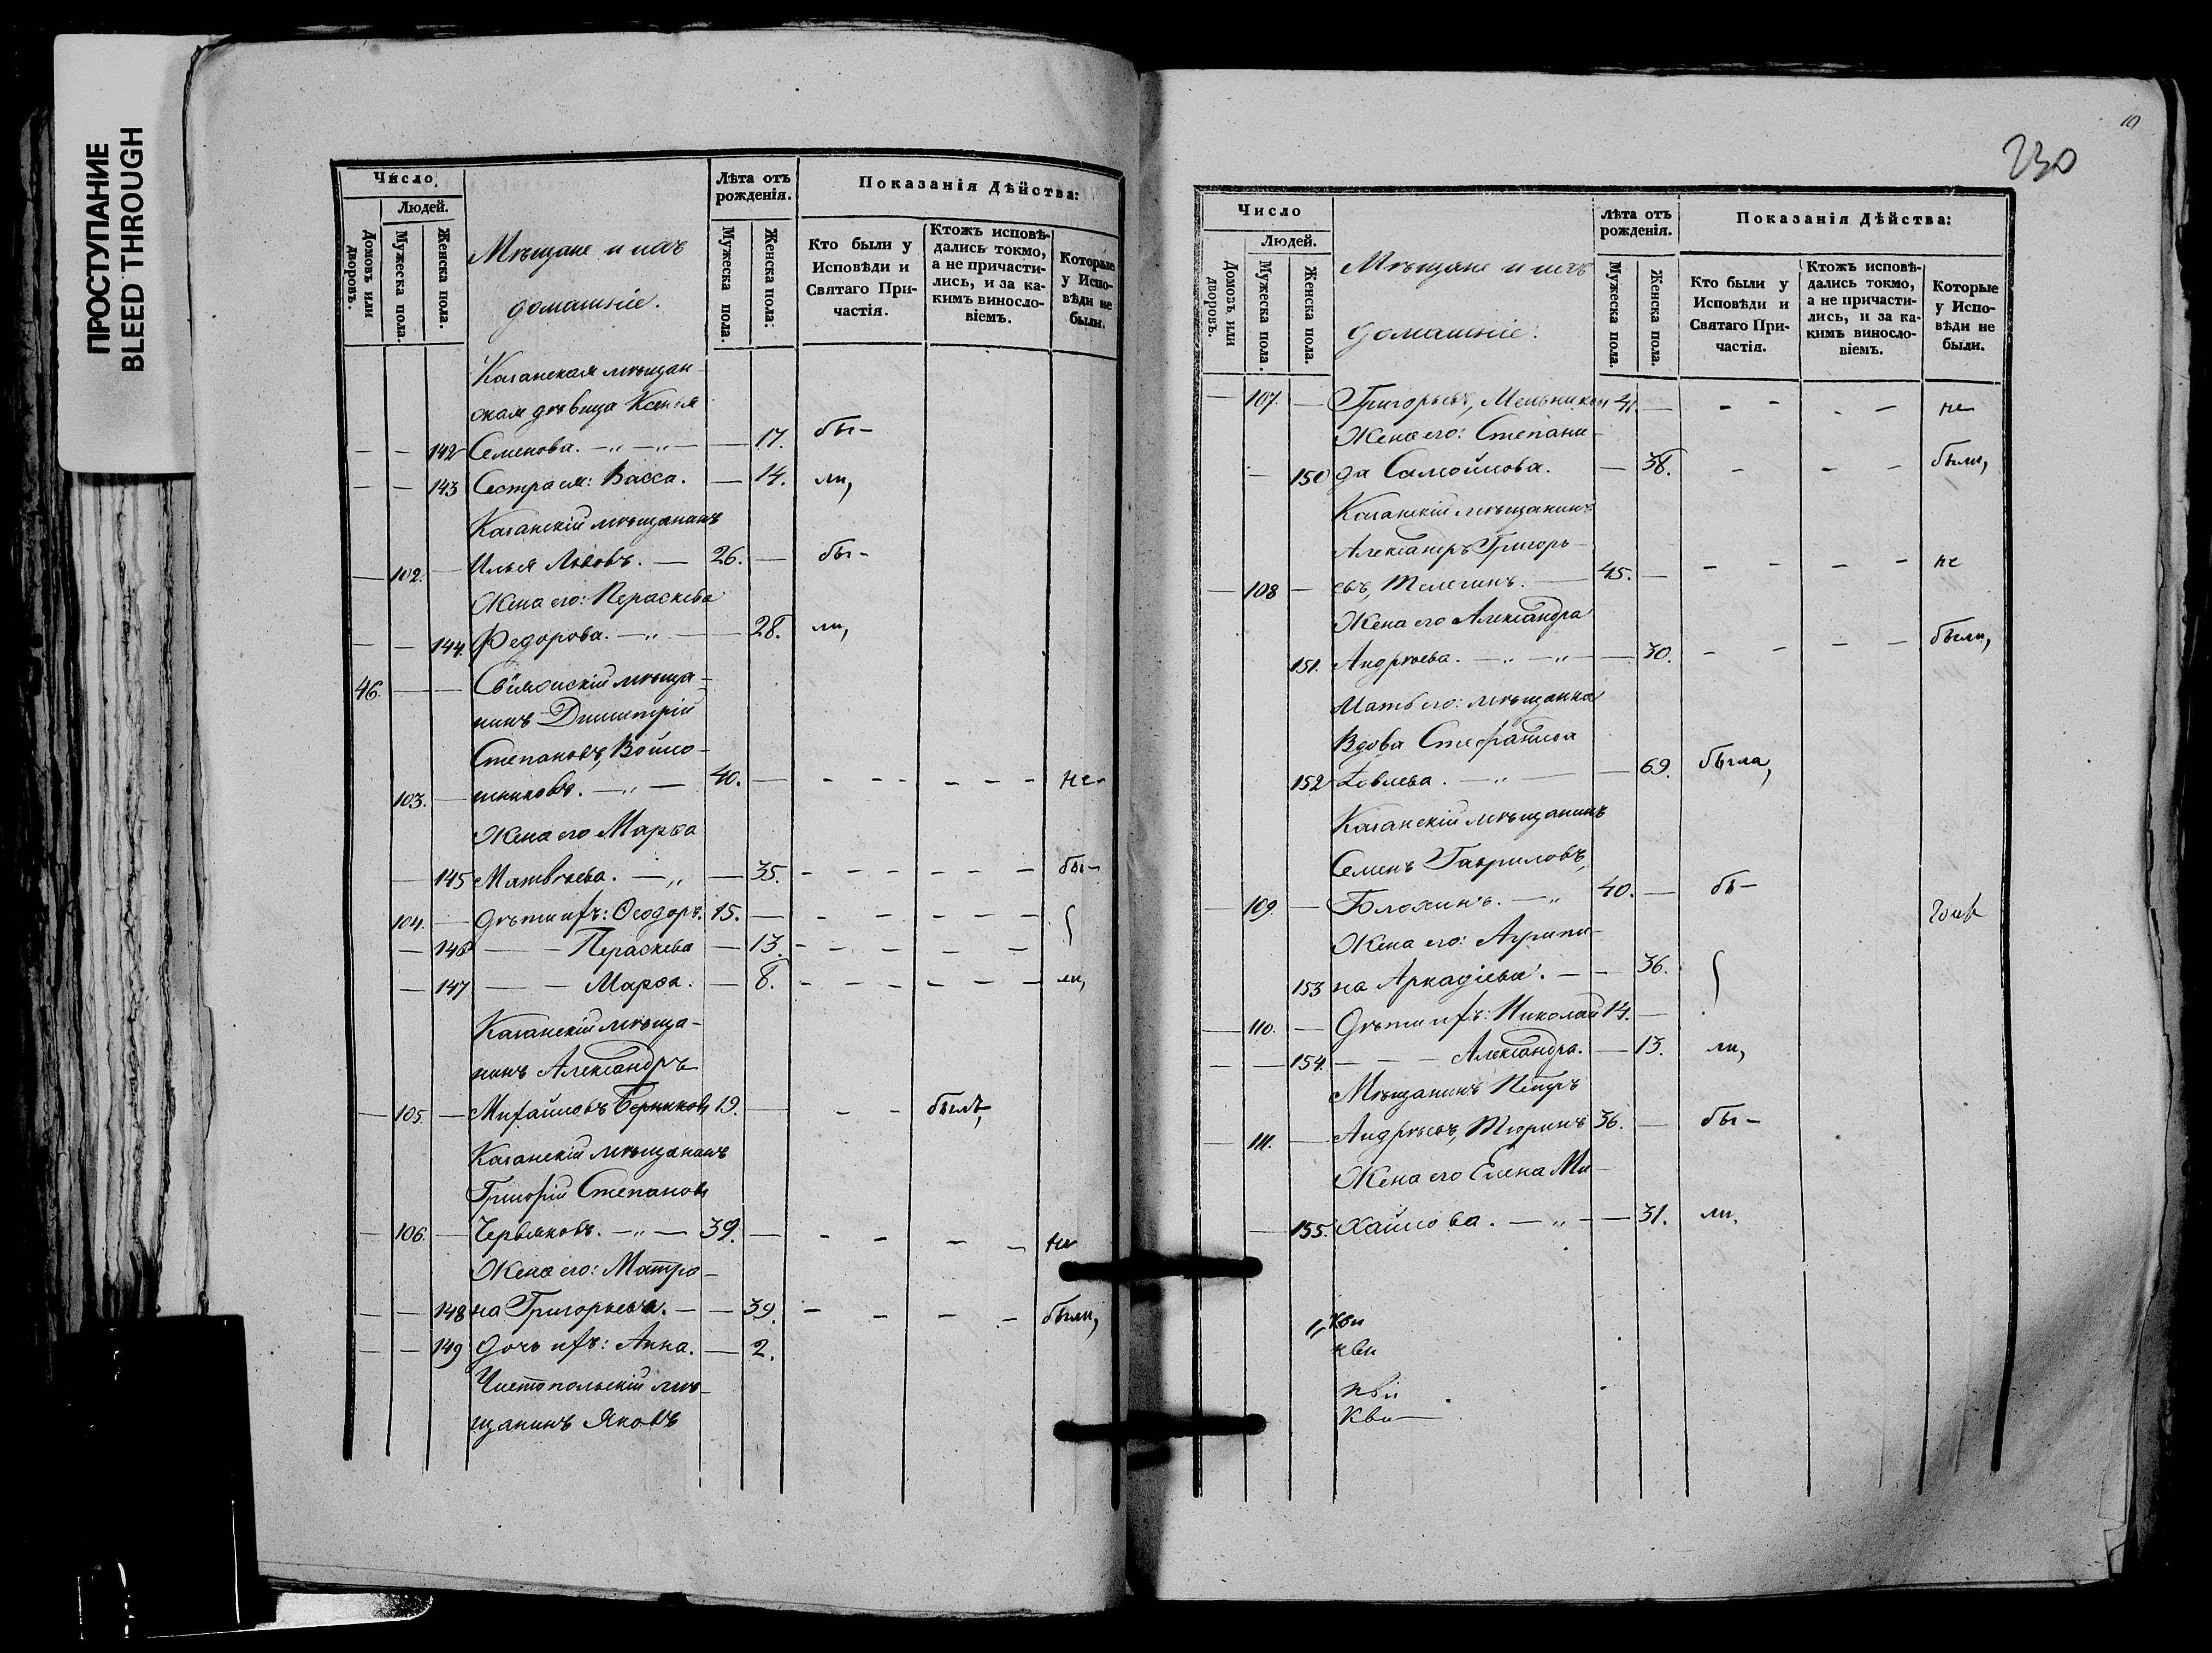 ПРОСТУПАНИЕ
BLEED THROUGH
Число.
Людей.
Домовъ или дворовъ.
Мужеска пола.
Женска пола.
Мѣщане и ихъ
домашніе.
Лѣта отъ рожденія.
Мужеска пола.
Женска пола.
Показанія Дѣйства:
Кто были у Исповѣди и Святаго Причастія.
Ктожъ исповѣдались токмо, а не причастились, и за какимъ винословіемъ.
Которые у Исповѣди не были.
Казанская мѣщан-
ская дѣвица Ксенья
— — 142 Семенова. —„—„— — 17. бы-
— — 143 Сестра ея: Васса. — 14. ли,
Казанскій мѣщанинъ
— 102. — Илья Львовъ. — 26. — бы-
Жена его: Параскева
— — 144. Федорова. —„— — 28. ли,
46. — — Свіяжскій мѣща-
нинъ Димитрій
Степановъ, Войло-
103. — шниковъ. —„— 40. — - - - - - - не
Жена его Марѳа
— 145 Матвѣева. —„ — 35. - - - - - - бы-
104. — Дѣти ихъ: Ѳеодоръ. 15. — - - - - -
— 146 — — Параскева — 13. - - - - -
— 147 — — Марѳа. — 8. - - - - - - ли,
Казанскій мѣща-
нинъ Александръ
— 105. — Михайловъ 19. — - - былъ,
Казанскій мѣщанинъ
Григорій Степановъ
— 106. — Червяковъ. —„— 39. — - - - - не
Жена его: Матро-
— — 148 на Григорьева. — — 39. - - - - были,
— — 149 Дочь ихъ: Анна. — 2.
Чистопольскій мѣ-
щанинъ Яковъ
10
230
Число
Людей.
Домовъ или дворовъ.
Мужеска пола.
Женска пола.
Мѣщане и ихъ
домашніе.
Лѣта отъ рожденія.
Мужеска пола.
Женска пола.
Показанія Дѣйства:
Кто были у Исповѣди и Святаго Причастія.
Ктожъ исповѣдались токмо, а не причастились, и за какимъ винословіемъ.
Которые у Исповѣди не были.
— 107. — Григорьевъ, Мельников 41. — - - - - не
Жена его: Степани-
— 150 да Самойлова. — 38. - - - были,
Казанскій мѣщанинъ
Александръ Григорь-
— 108 — евъ, Телегинъ. — 45. — - - - - не
Жена его Александра
151. Андрѣева. —„—„— — 30. - - - - были,
Мать его: мѣщанка
Вдова Стефанида
152 Іовлева. —„— — 69. была,
Казанскій мѣщанинъ
Семенъ Гавриловъ,
— 109. — Блохинъ. —„ 40. — бы-
Жена его: Агрипи-
153 на Аркадіева. — — 36.
— 110. — Дѣти ихъ: Николай 14. —
— — 154. — — — Александра. — 13. ли,
Мѣщанинъ Петръ
— 111. — Андрѣевъ, Тюринъ 36. — бы-
Жена его Елена Ми-
— 155. хайлова. —„— — 31. ли.